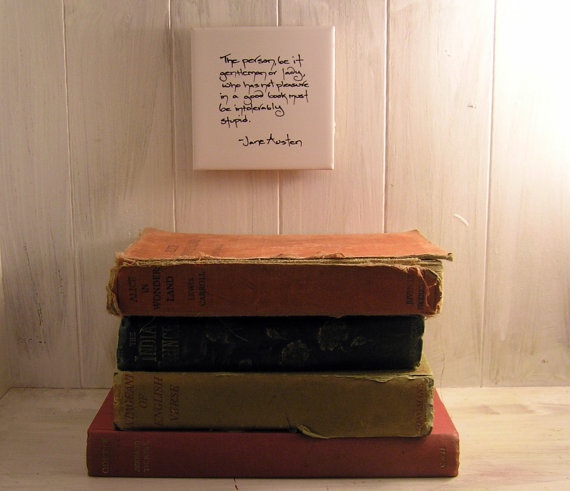 The person, be it
gentleman or lady,
who has not pleasure
in a good book must
be intolerably
stupid.
-Jane Austen
ALICE
IN
WONDER
LAND
LEWIS
CARROLL
THE
OF
ENGLISH
VERSE